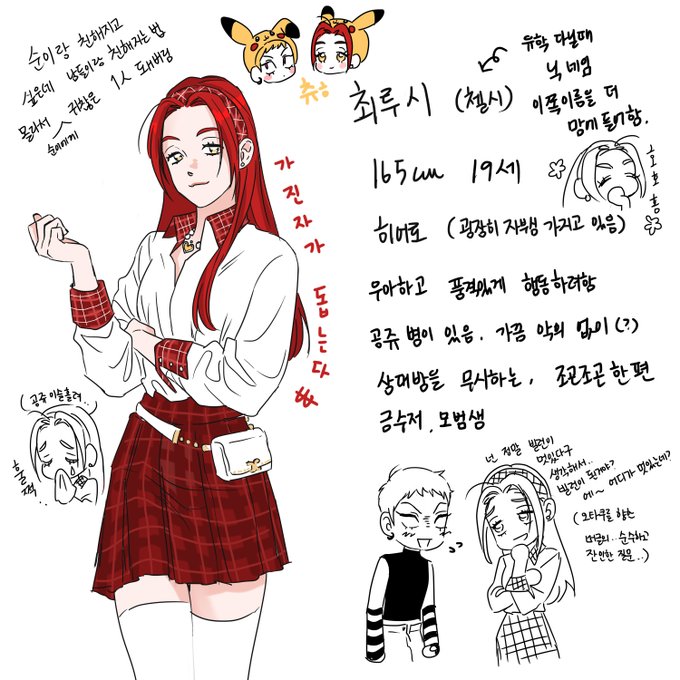 순이랑 친해지고
싶은데 남들이랑 친해지는법
몰라서 귀찮은 1人 돼버림
순이에게
츄ㅎ
최루시 (첼시)
유학 다닐때
닉네임
이쪽이름을 더
맘에 들어함.
165cm 19세
호호홍
히어로 (굉장히 자부심 가지고 있음)
우아하고 품격있게 행동하려함
공쥬 병이 있음. 가끔 악의 없이(?)
상대방을 무시하는, 조곤조곤한 편
금수저, 모범생
가진자가 돕는다
(공쥬 이슬흘려..)
훌쩍..
넌 정말 발전이
멋있다구
생각해서..
발전이 뭔가요?
에~ 어디가 멋있는데?
(오타쿠를 향한
버글의.. 순수하고
잔인한 질문..)